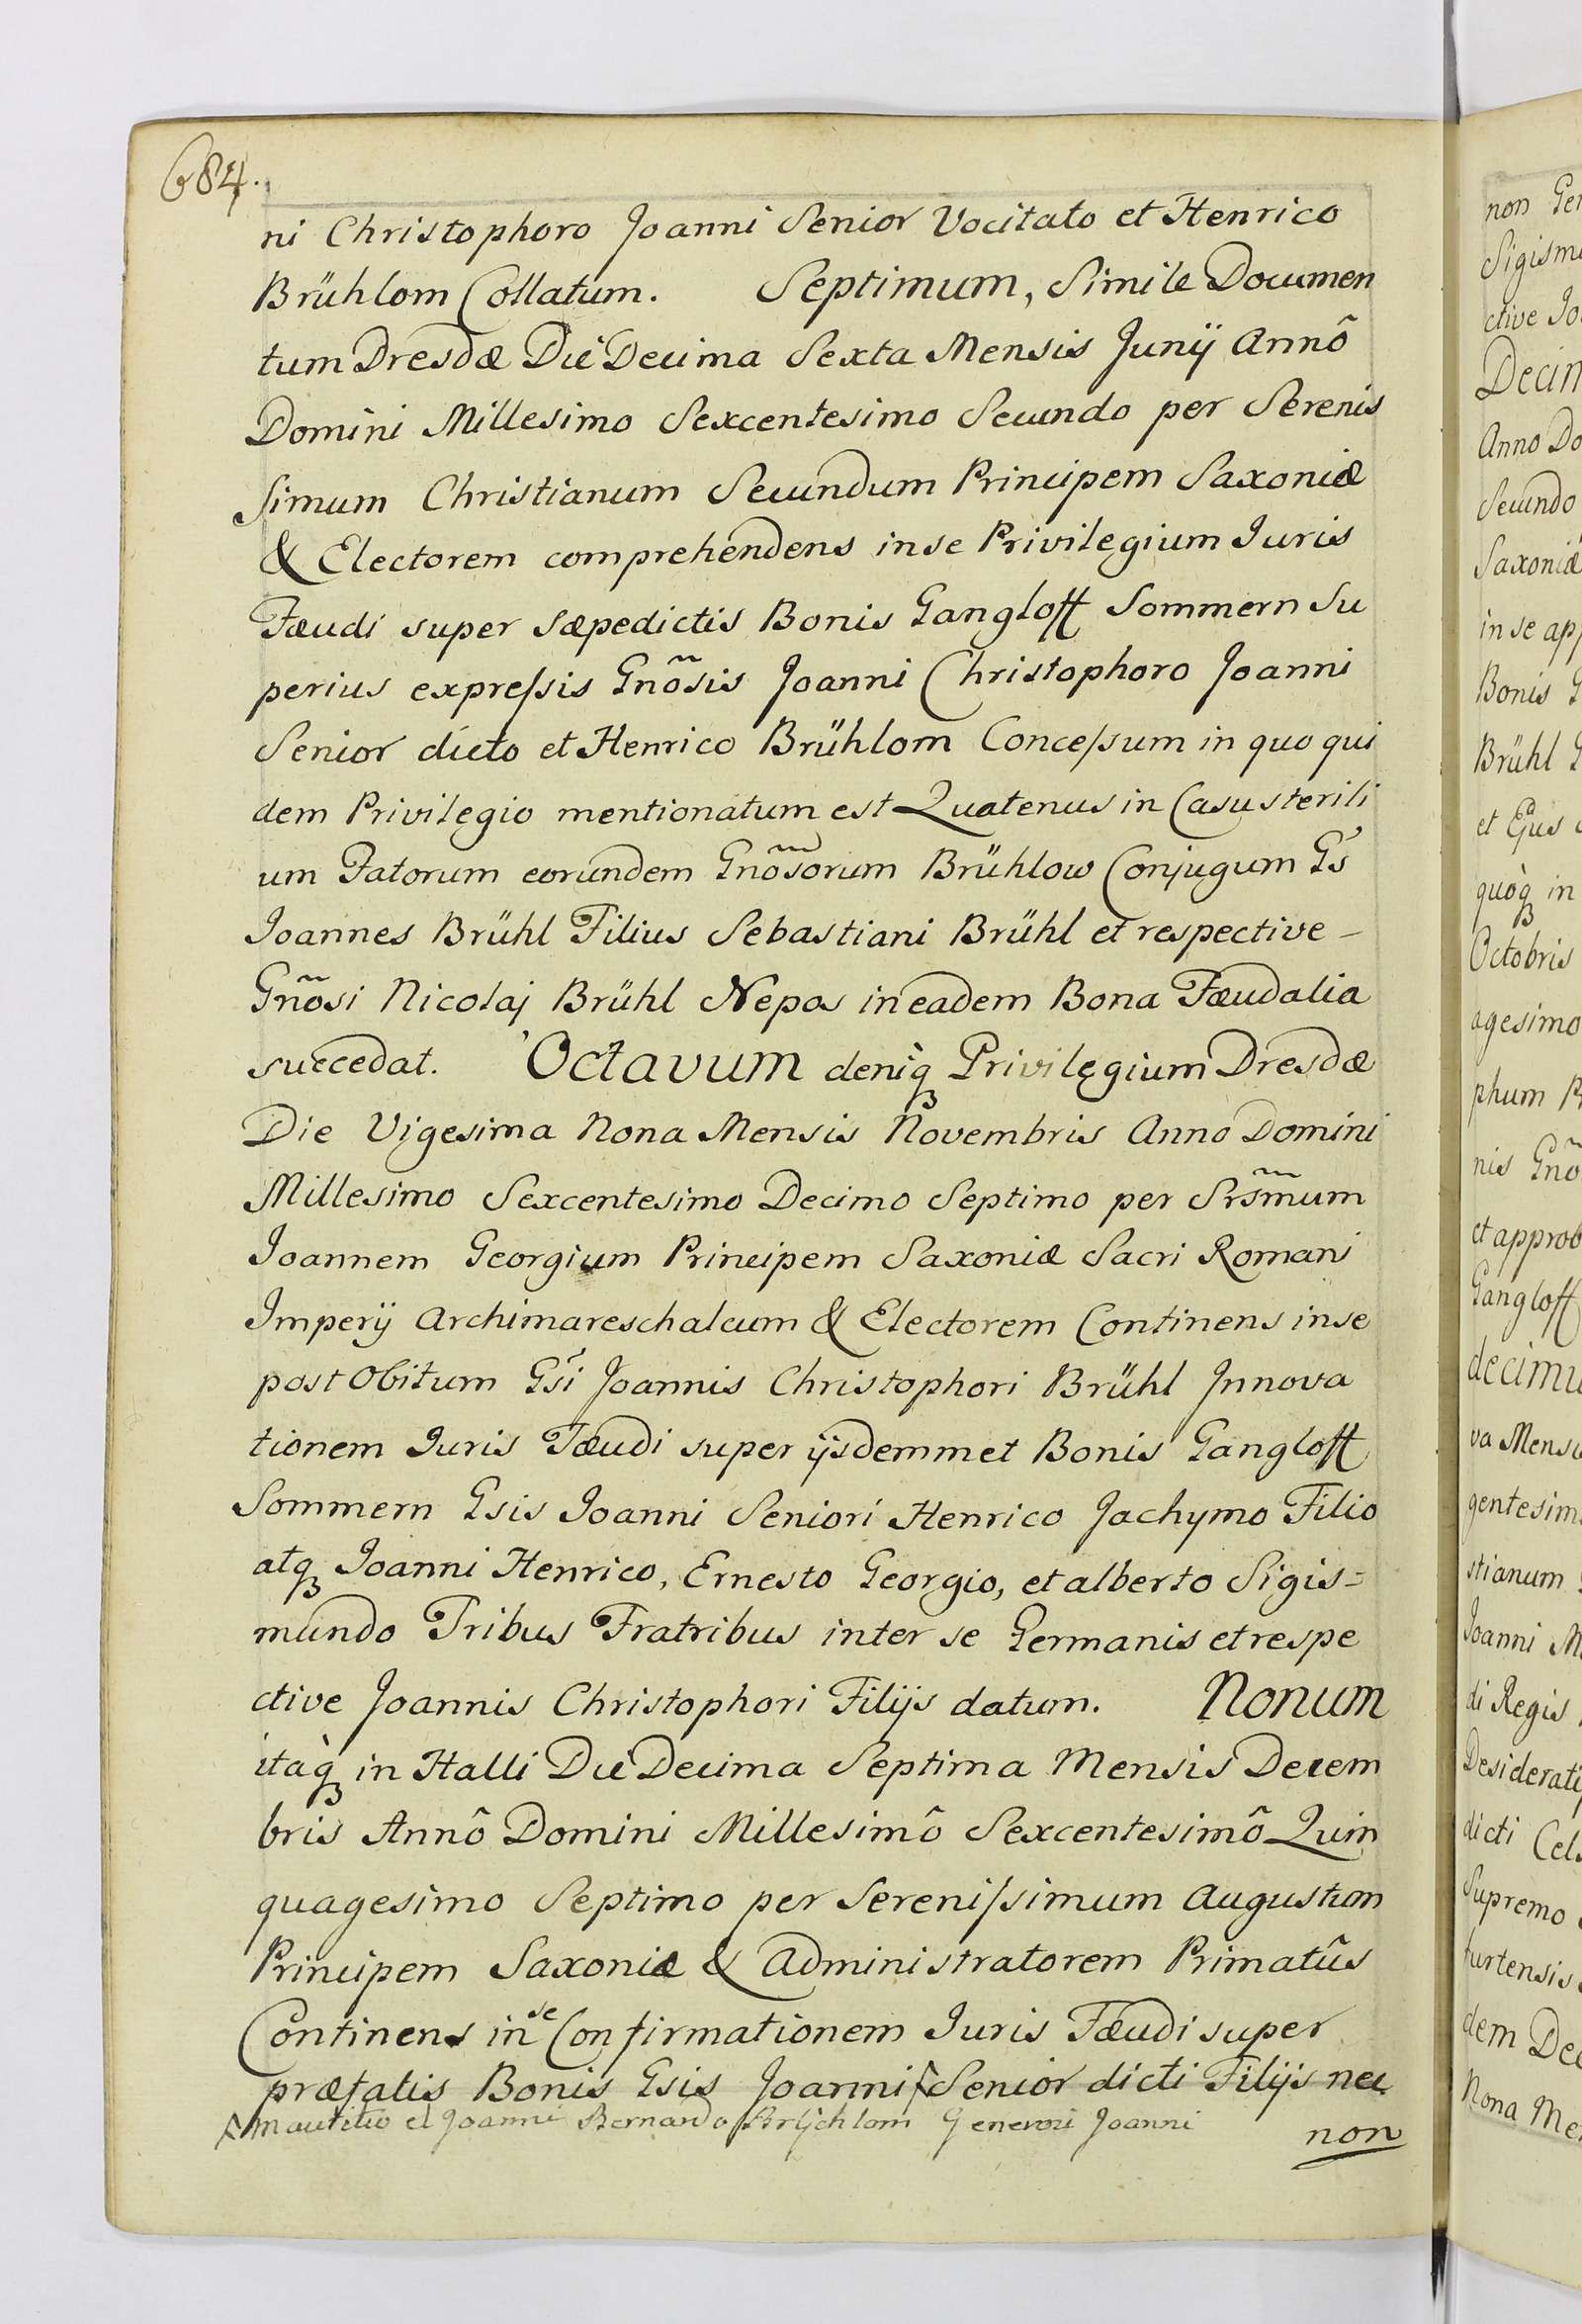 684.
ni Christophoro Joanni Senior Vocitato et Henrico
Brühlom Collatum. Septimum, Simile Documen
tum Dresdæ Die Decima Sexta Mensis Junÿ Annô
Domini Millesimo Sexcentesimo Secundo per Serenis
simum Christianum Secundum Principem Saxoniæ
& Electorem comprehendens in se Privilegium Juris
Fæudi super sæpedictis Bonis Gangloff Sommern Su
perius expressis Gnõsis Joanni Christophoro Joanni
Senior dicto et Henrico Brühlom Concessum in quo qui
dem Privilegio mentionatum est Quatenus in Casu sterili
um Fatorum eorundem Gnõsorum Brühlow Conjugum Gs̃
Joannes Brühl Filius Sebastiani Brühl et respective -
Gnõsi Nicolaj Brühl Nepos in eadem Bona Fæudalia
succedat. Octavum deniq̀ Privilegium Dresdæ
Die Vigesima Nona Mensis Novembris Anno Domini
Millesimo Sexcentesimo Decimo Septimo per Srs̃mum
Joannem Georgium Principem Saxoniæ Sacri Romani
Imperÿ Archimareschalcum & Electorem Continens in se
post Obitum Gs̃i Joannis Christophori Brühl Innova
tionem Juris Fæudi super ÿsdemmet Bonis Gangloff
Sommern Gsis Joanni Seniori Henrico Jachymo Filio
atq Joanni Henrico, Ernesto Georgio, et alberto Sigis=
mundo Tribus Fratribus inter se Germanis et respe
ctive Joannis Christophori Filÿs datum. Nonum
itaq̀ in Halli Die Decima Septima Mensis Decem
bris Annô Domini Millesimô Sexcentesimô Quin
quagesimo Septimo per Serenissimum Augustum
Principem Saxoniæ & Administratorem Primatûs
Continens in se Confirmationem Juris Fæudi super
præfatis Bonis Gsis Joanni Senior dicti Filÿs nec
Mauritio et Joanni Bernardo Brÿchlom Generosi Joanni
non
non Ge
Sigism
ctive Jo
Decim
Anno Do
Secundo
Saxoniæ
in se ap
Bonis G
Brühl G
et Ejus
quoq̀ in
Octobris
agesimo
phum P
nis Gnõ
et approb
Gangloff
decimu
va Mensi
gentesim
stianum
Joanni M
di Regis
Desiderati
dicti Cels
Supremo
furtensis
dem Dec
Nona Me